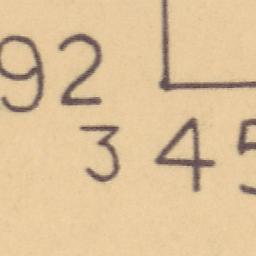 92
345